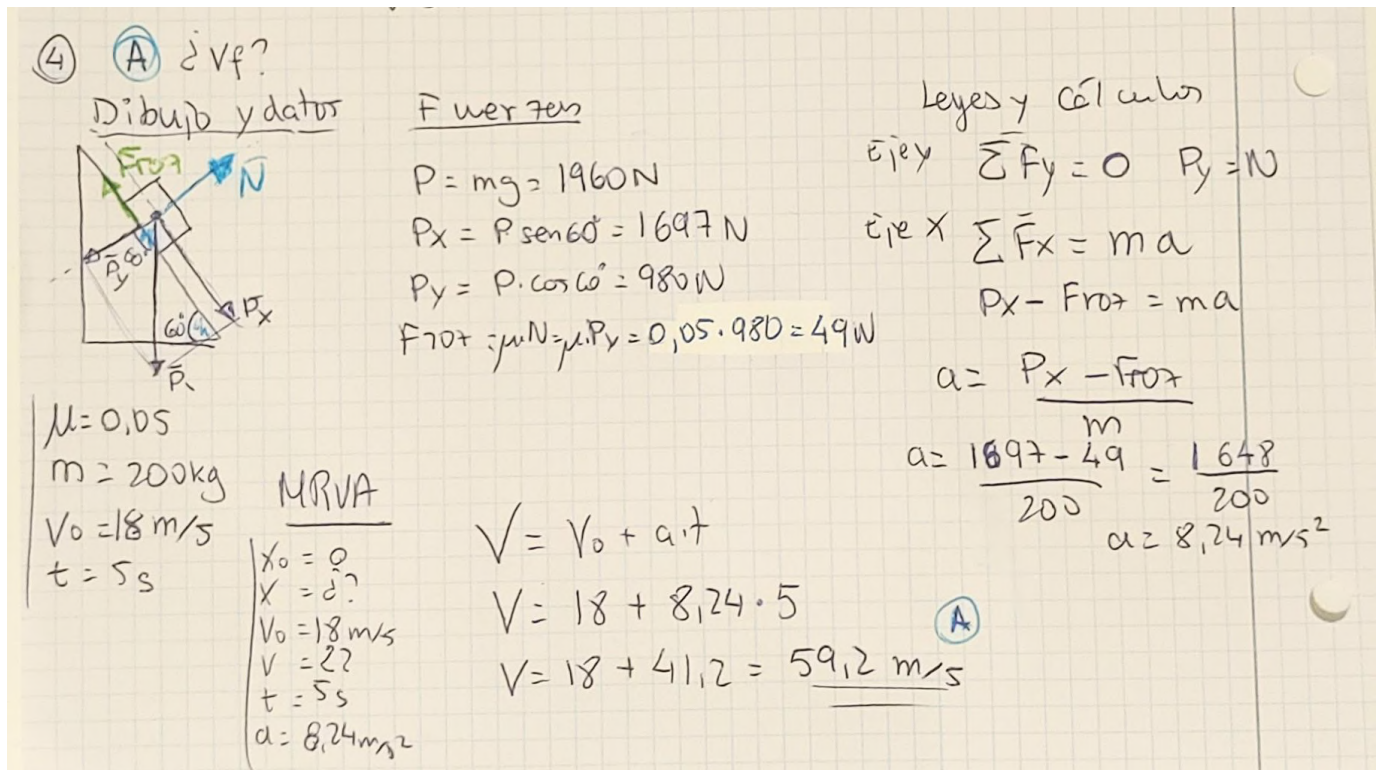 ④ Ⓐ ¿Vf?
Dibujo y datos
Froz
N
Py
8
Px
60°
P
μ = 0,05
m = 200kg
Vo = 18 m/s
t = 5s
Fuerzas
P = mg = 1960N
Px = P sen60° = 1697 N
Py = P. cos60° = 980N
Froz = μ.N = μ.Py = 0,05 . 980 = 49N
Leyes y cálculos
Eje y ΣFy = 0 Py = N
Eje X ΣFx = ma
Px - Froz = ma
a = Px - Froz / m
a = 1697 - 49 / 200 = 1648 / 200
a = 8,24 m/s²
MRVA
Xo = 0
X = ¿?
Vo = 18 m/s
V = ??
t = 5s
a = 8,24 m/s²
V = Vo + a.t
V = 18 + 8,24 . 5
V = 18 + 41,2 = 59,2 m/s
Ⓐ